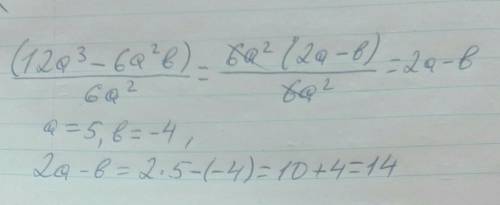 (12a³ - 6a²b) / 6a² = 6a² (2a - b) / 6a² = 2a - b
a = 5, b = -4,
2a - b = 2·5 - (-4) = 10 + 4 = 14